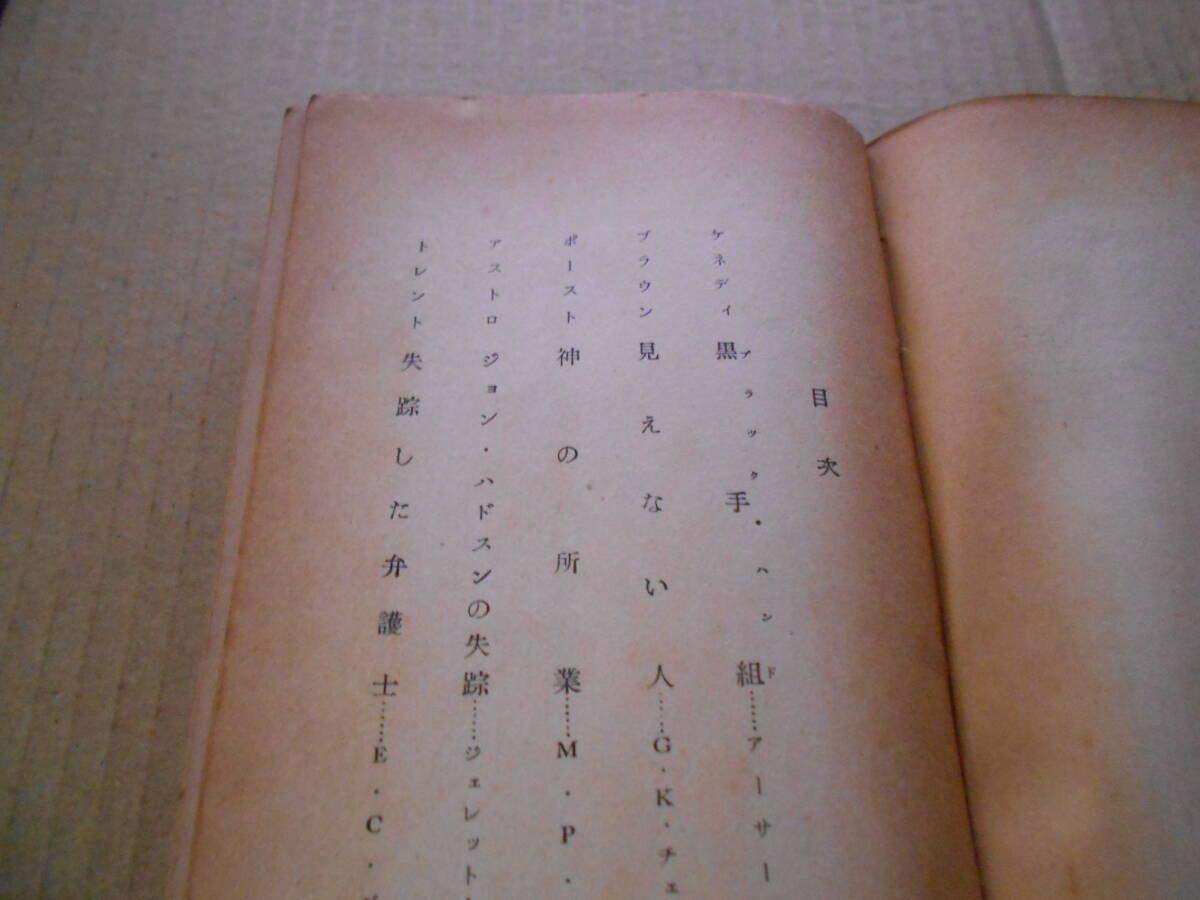 目次
ケネディ 黒手組……アーサー
ブラック・ハンド
ブラウン 見えない人……G・K・チェ
ポースト 神の所業……M・P・
アストロ ジョン・ハドスンの失踪……ジェレット
トレント 失踪した弁護士……E・C・